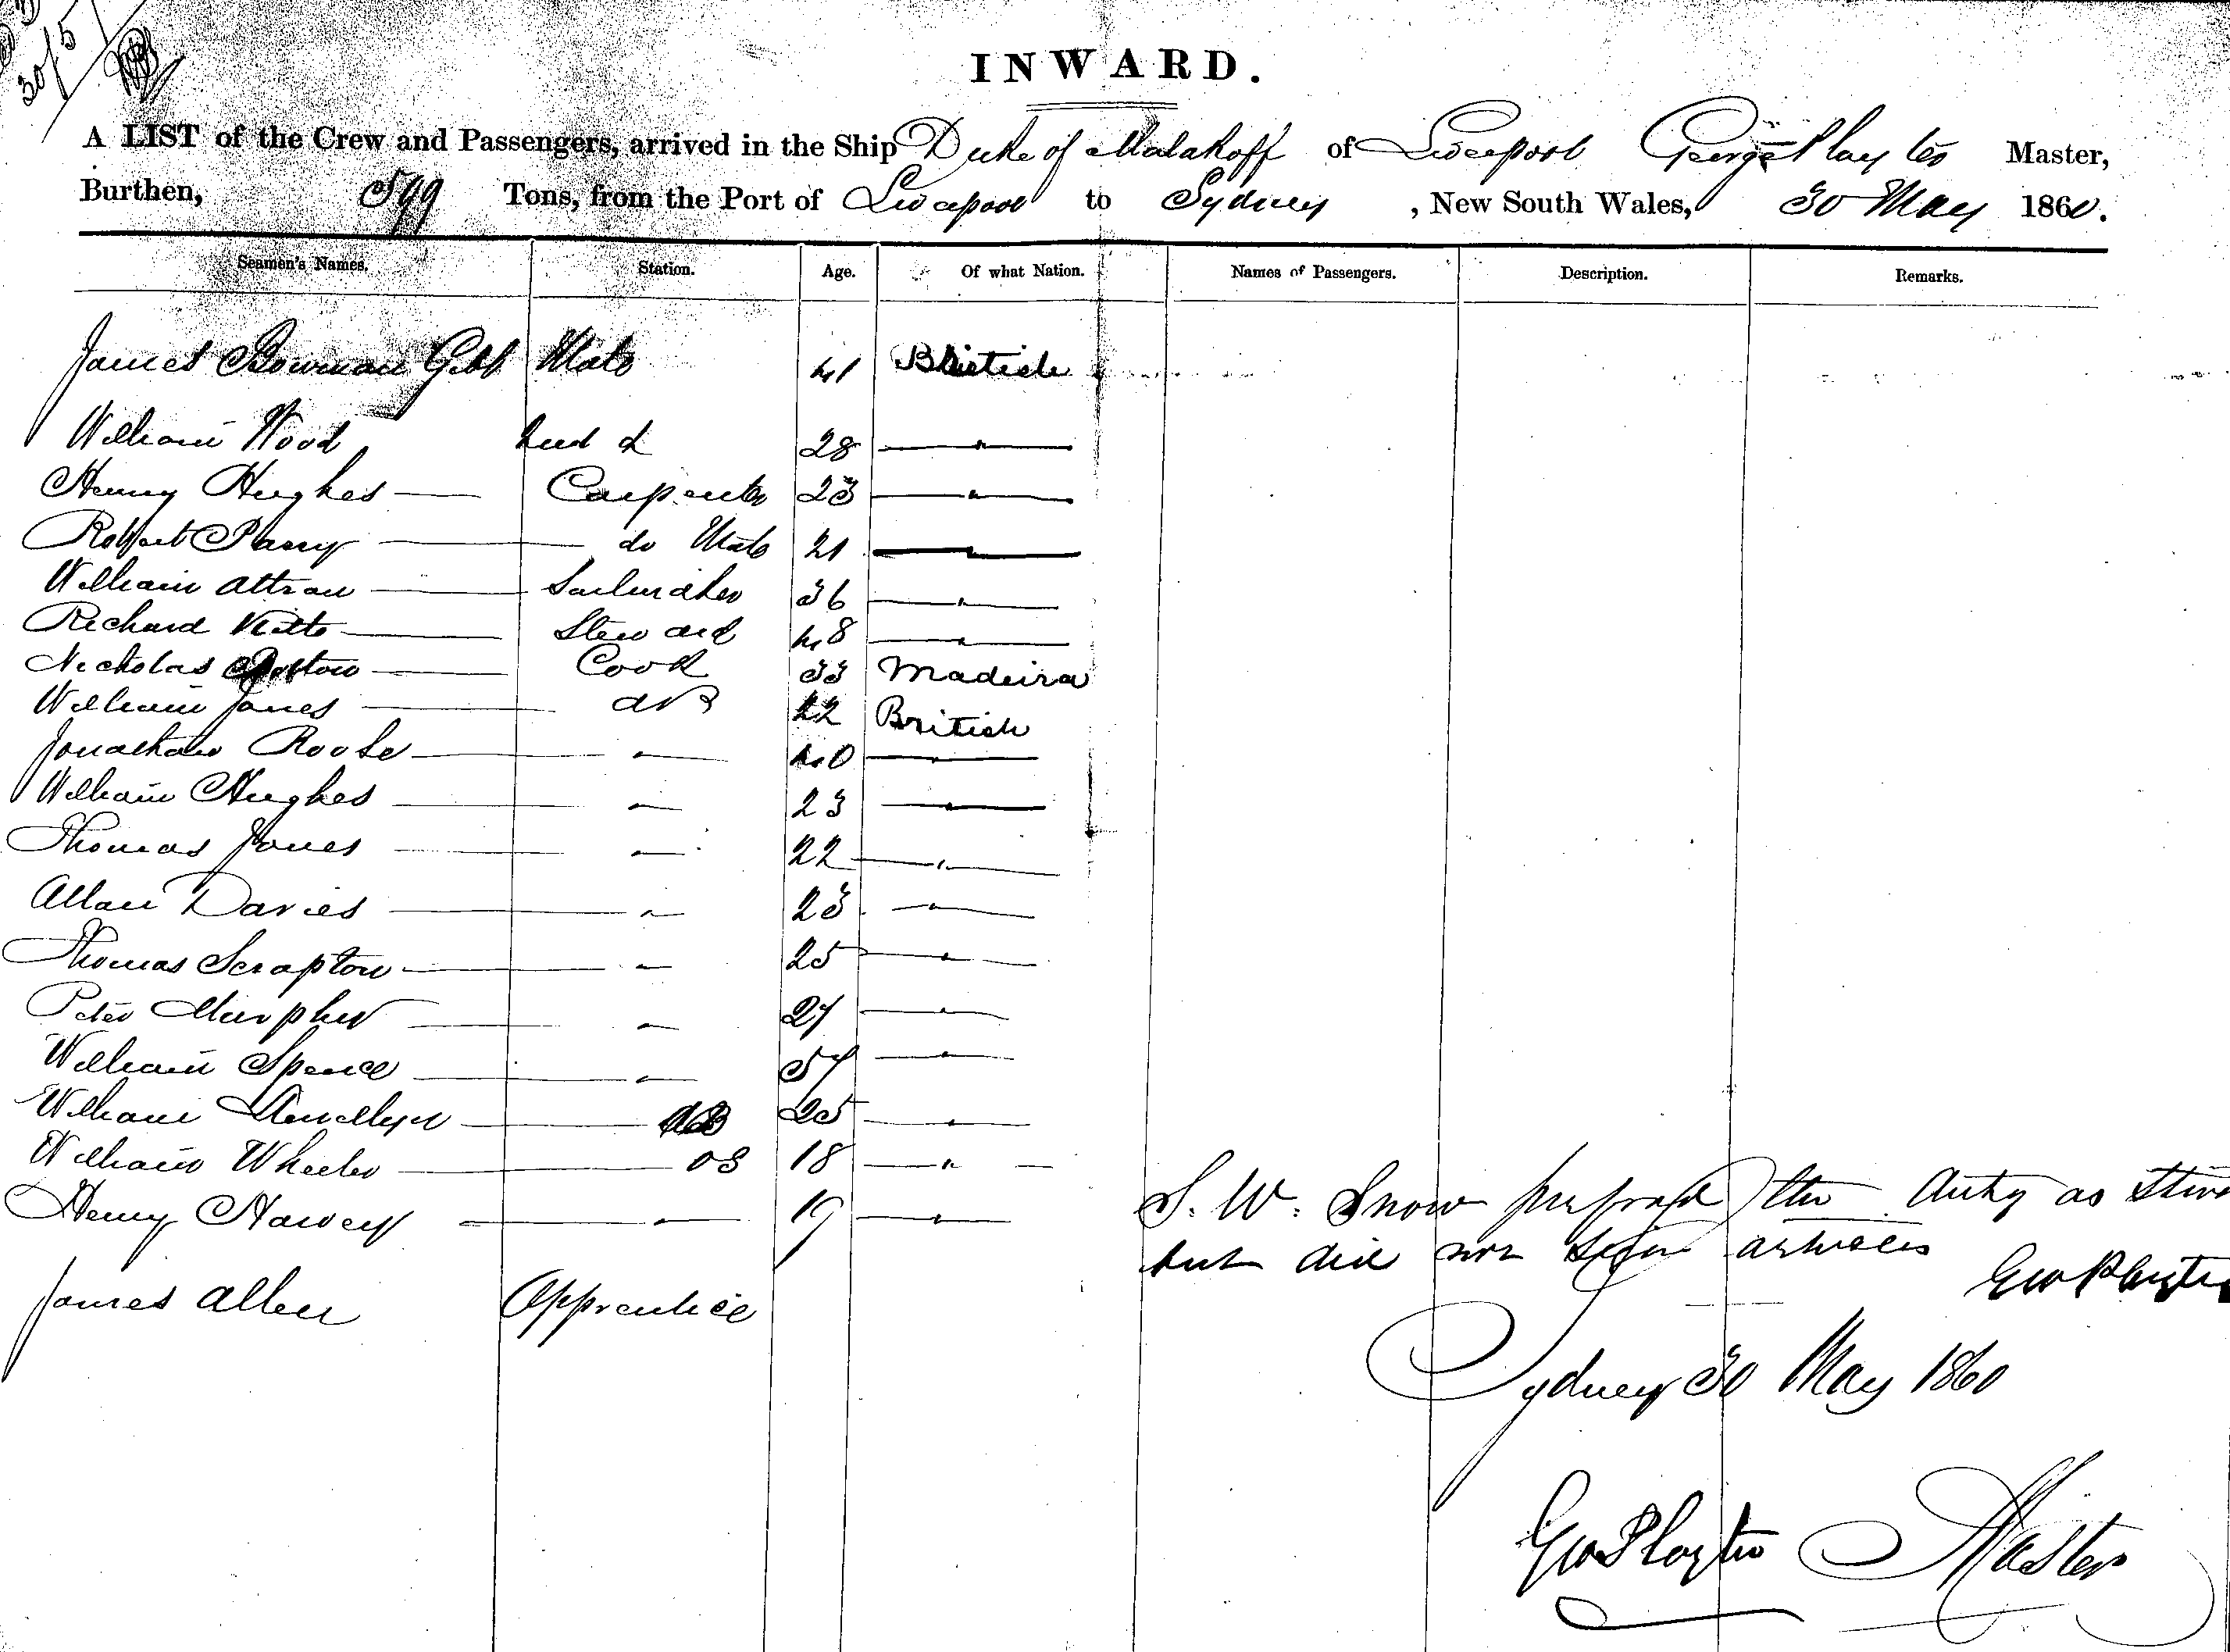 30/5
INWARD.
A LIST of the Crew and Passengers, arrived in the Ship Duke of Malakoff of Liverpool George Playter Master,
Burthen, 599 Tons, from the Port of Liverpool to Sydney, New South Wales, 30 May 1860.
Seamen's Names. Station. Age. Of what Nation. Names of Passengers. Description. Remarks.
James Bowman Gibb Mate 41 British
William Wood 28 "
Henry Hughes Carpenter 23 "
Robert Parry do Mate 21 "
William Attrau Sailmaker 36 "
Richard Kitto Steward 48 "
Nicholas Cook 33 Madeira
William Jones AB 22 British
Jonathan Roose " 40 "
William Hughes " 23 "
Thomas Jones " 22 "
Allan Davies " 23 "
Thomas Scrapton " 25 "
Peter Murphy " 27 "
William Spence " 57 "
William Llewellyn AB 25 "
William Wheeler OS 18 "
Henry Harvey " 19 "
S. W. Snow the duty as
but did not sign articles
Geo Playter
James Allen Apprentice
Sydney 30 May 1860
Geo Playter Master